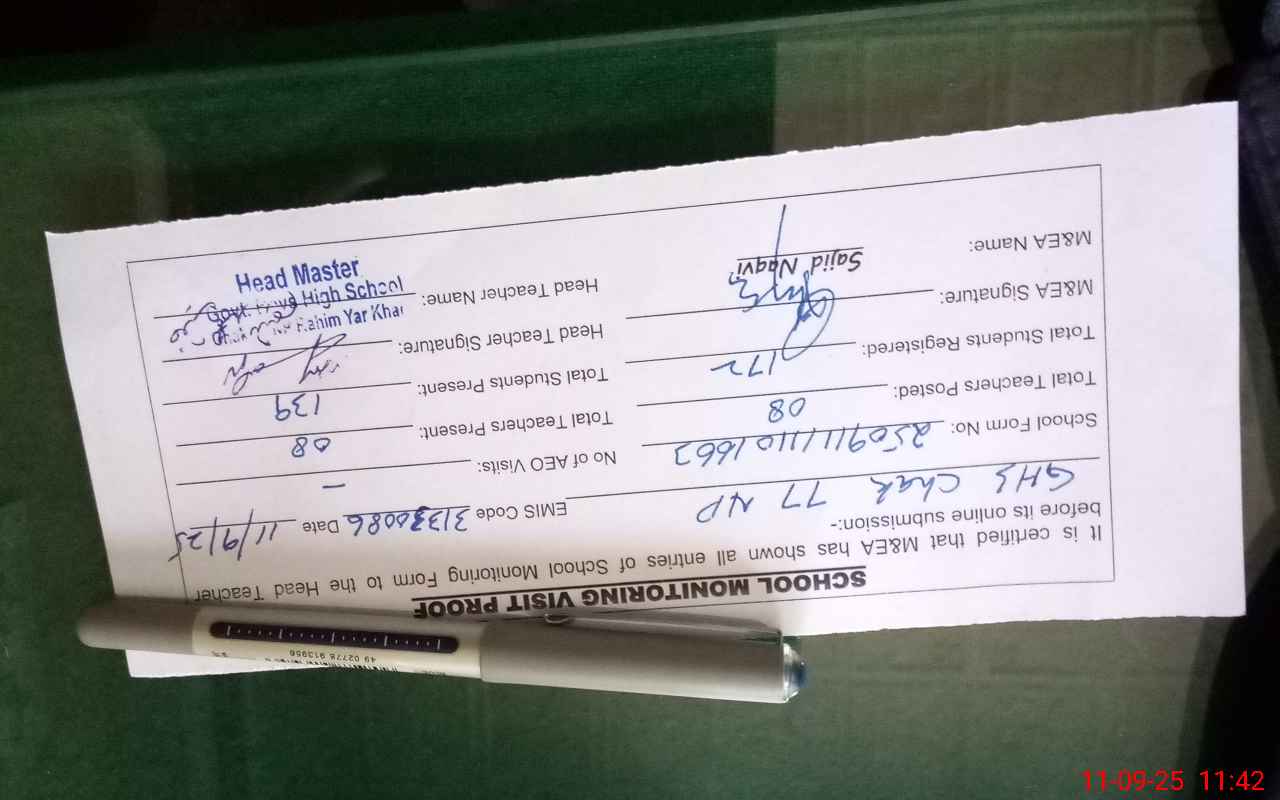 SCHOOL MONITORING VISIT PROOF
It is certified that M&EA has shown all entries of School Monitoring Form to the Head Teacher
before its online submission:-
GHS Chak 77 NP EMIS Code 31330086 Date 11/9/25
School Form No: 2509111101662 No of AEO Visits: –
Total Teachers Posted: 08 Total Teachers Present: 08
Total Students Registered: 172 Total Students Present: 139
M&EA Signature: Head Teacher Signature:
M&EA Name: Sajid Naqvi Head Teacher Name:
Head Master
Govt. High School
Chak NP Rahim Yar Khan
49 02778 913956
11-09-25 11:42